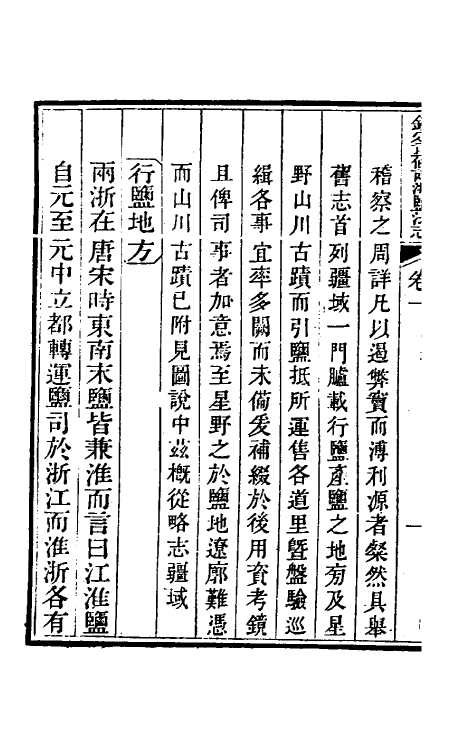 稽察之周詳凡以遏弊竇而溥利源者粲然具舉
舊志首列疆域一門臚載行鹽產鹽之地旁及星
野山川古蹟而引鹽抵所運售各道里曁盤驗巡
緝各事宜率多闕而未備爰補綴於後用資考鏡
且俾司事者加意焉至星野之於鹽地遼廓難憑
而山川古蹟已附見圖說中茲概從略志疆域
行鹽地方
兩浙在唐宋時東南末鹽皆兼淮而言曰江淮鹽
自元至元中立都轉運鹽司於浙江而淮浙各有